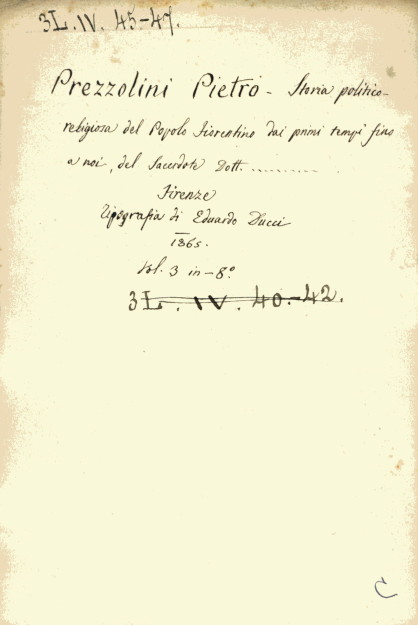 3L. IV. 45-47.
Prezzolini Pietro - Storia politico-
religiosa del Popolo Fiorentino dai primi tempi fino
a noi, del Sacerdote Dott. ..........
Firenze
Tipografia di Eduardo Ducci
1865.
Vol. 3 in-8º
3L. IV. 40-42.
C